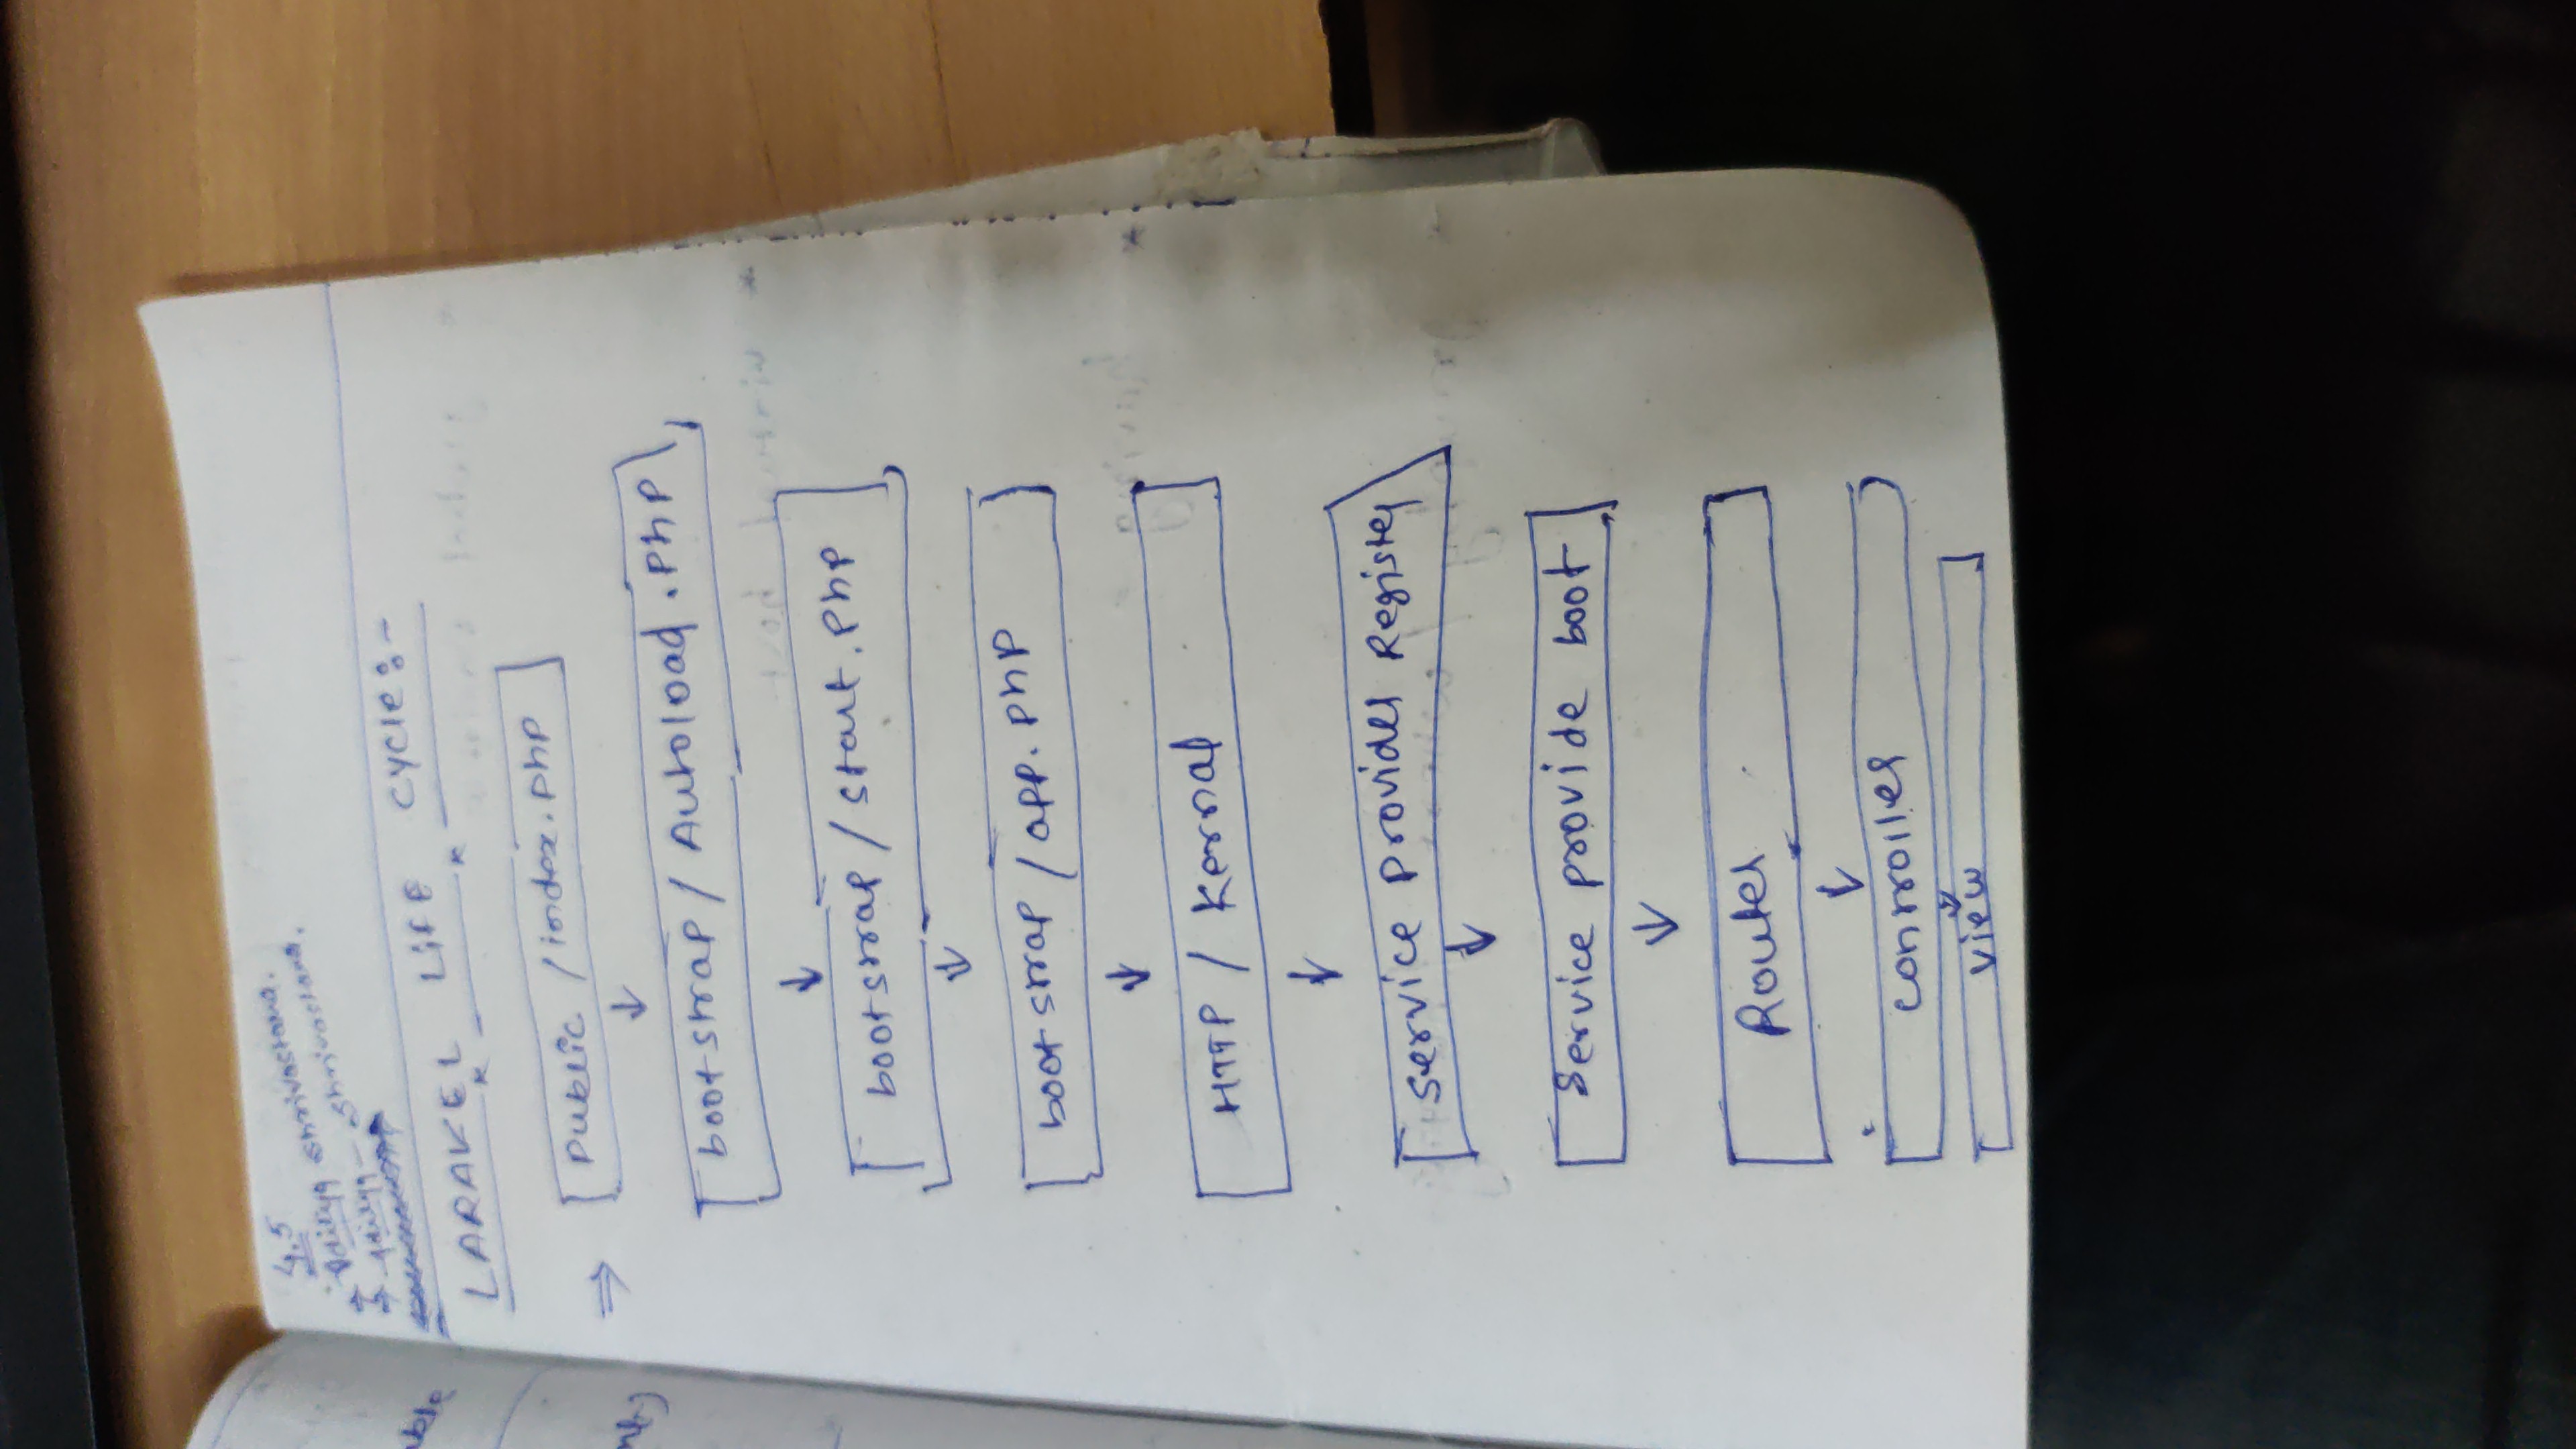 4.5
→ Aditya Shrivastava.
→ Aditya - Shrivastava.
LARAVEL LIFE CYCLE:-
⇒ Public / index.php
↓
bootstrap / Autoload.php
↓
bootstrap / start.php
↓
bootstrap / app.php
↓
HTTP / Kernal
↓
Service Provider Register
↓
Service provide boot
↓
Router
↓
controller
↓
view